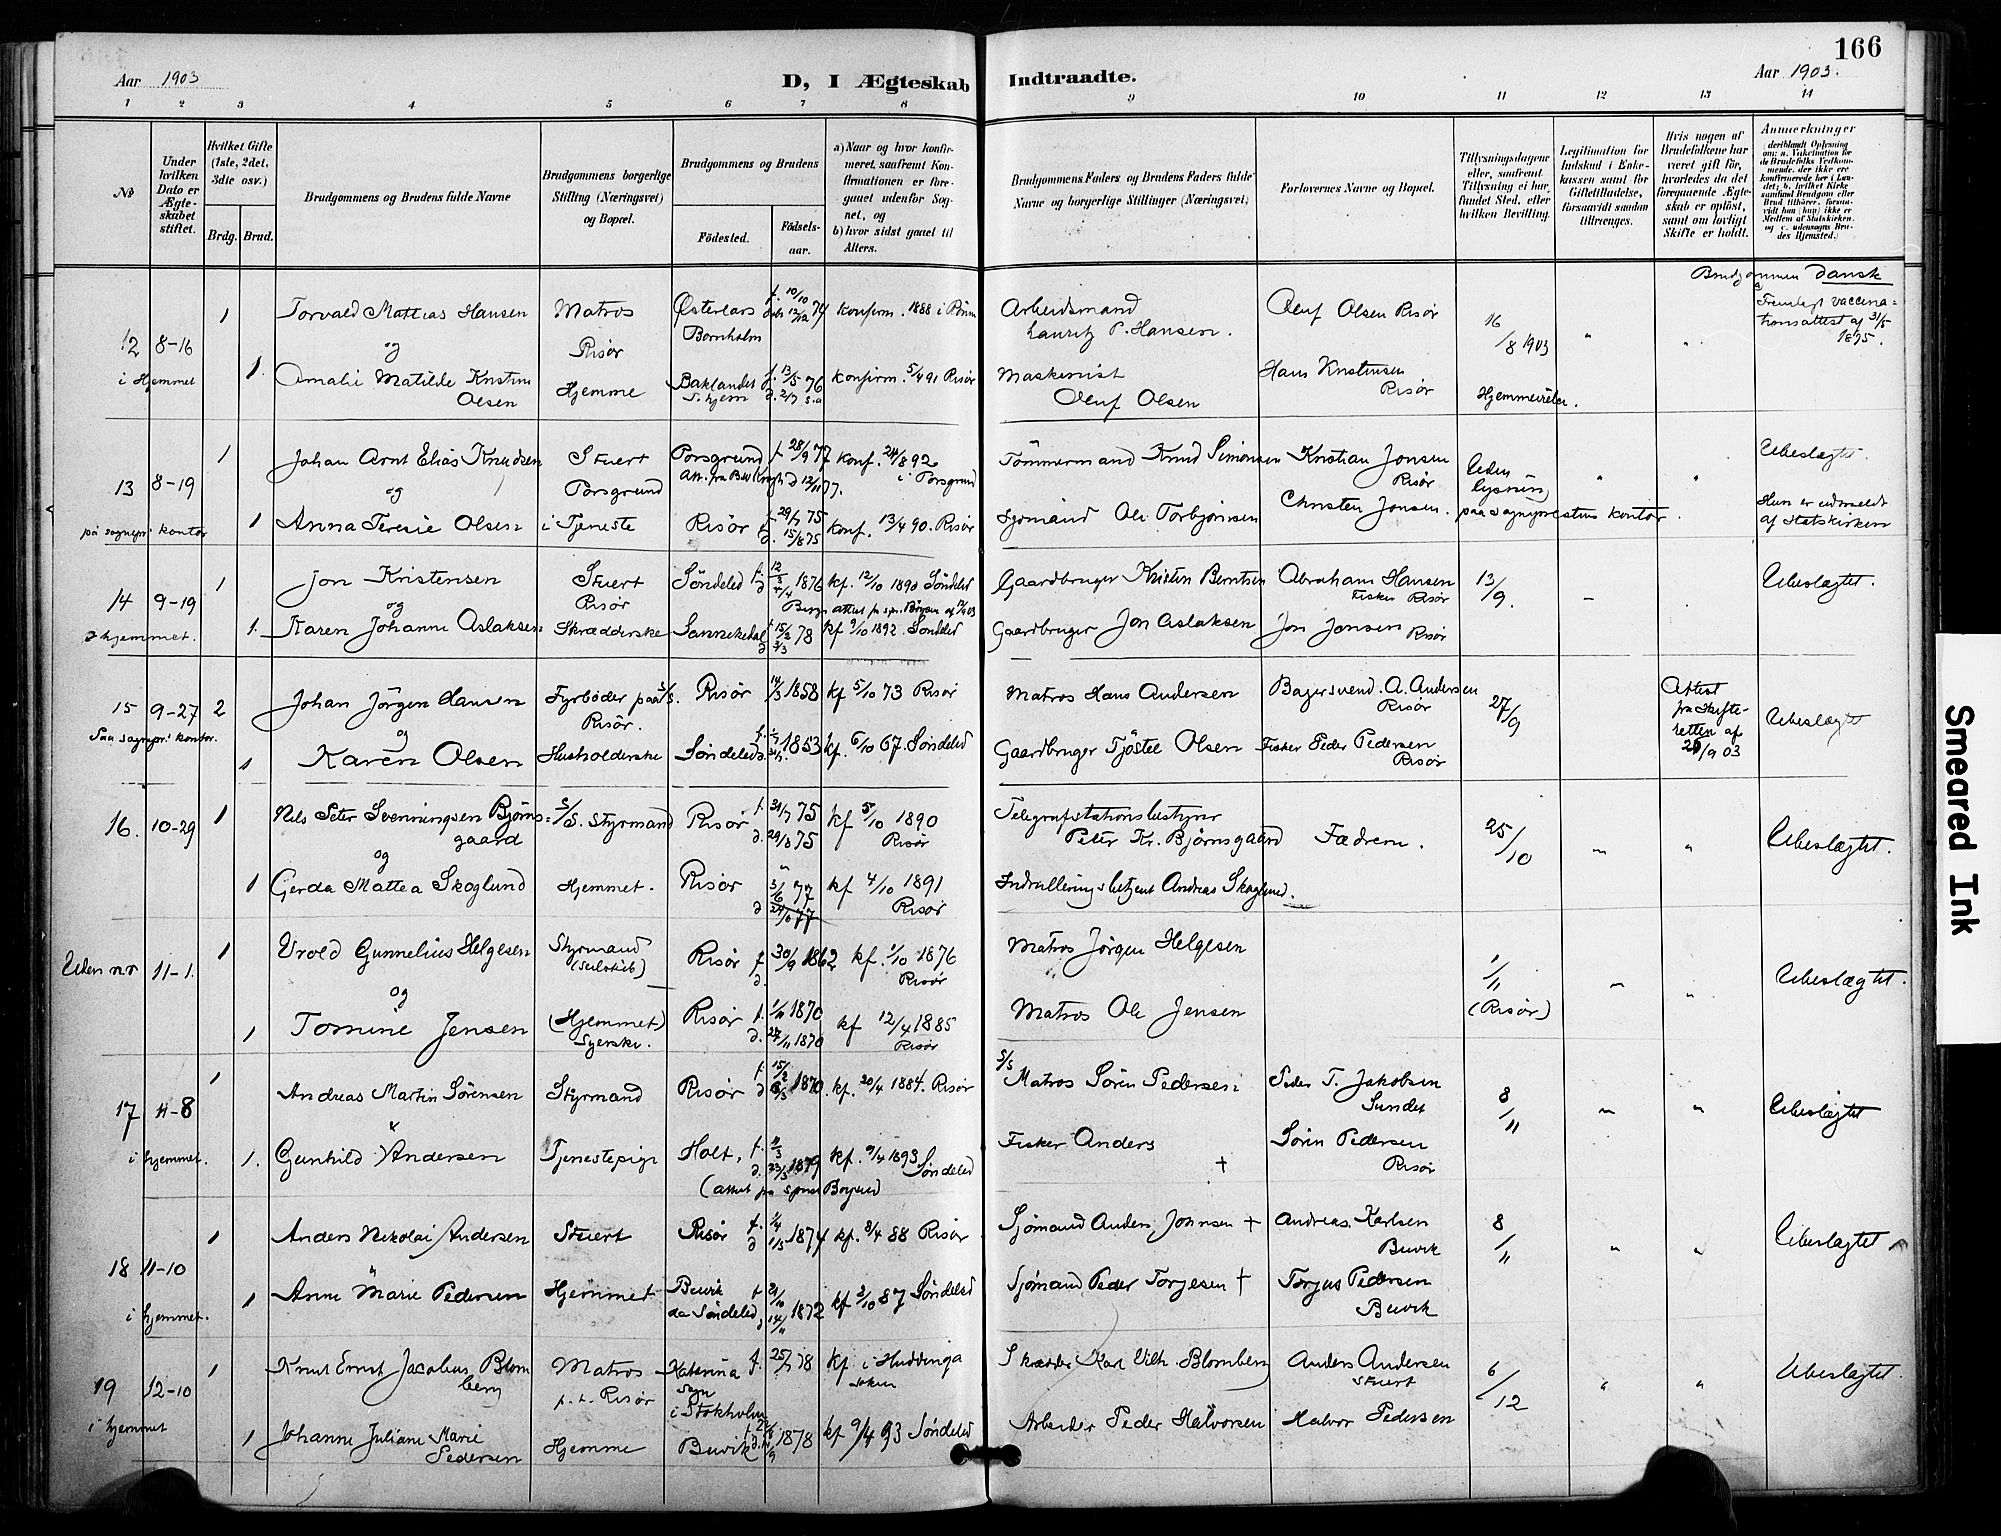 166
Aar 1903
D, I Ægteskab Indtraadte.
Aar 1903.
1 2 3 4 5 6 7 8 9 10 11 12 13 14
No
Under hvilken Dato er Ægteskabet stiftet.
Hvilket Gifte (1ste, 2det, 3die osv.)
Brdg. Brud.
Brudgommens og Brudens fulde Navne
Brudgommens borgerlige Stilling (Næringsvei) og Bopæl.
Brudgommens og Brudens
Födested.
Födsels-aar.
a) Naar og hvor konfirmeret, saafremt Konfirmationen er foregaaet udenfor Sognet, og
b) hvor sidst gaaet til Alters.
Brudgommens Faders og Brudens Faders fulde Navne og borgerlige Stillinger (Næringsvei)
Forlovernes Navne og Bopæl.
Tillysningsdagene eller, saafremt Tillysning ei har fundet Sted, efter hvilken Bevilling.
Legitimation for Indskud i Enkekassen samt for Giftetilladelse, forsaavidt saadan tiltrænges.
Hvis nogen af Brudefolkene har været gift för, hvorledes da det foregaaende Ægteskab er oplöst, samt om lovligt Skifte er holdt.
Anmærkninger
Brudgommen Dansk
12 8-16 1 Torvald Mattias Hansen Matros Østerlars 10/10 74 konfirm. 1888 i Rönne Arbeidsmand Oluf Olsen Risør
og Risør Bornholm Lauritz P. Hansen. 16/8 1903 Fremlagt vaccinationsattest af 31/5 1875.
i Hjemmet 1. Amalie Matilde Kristine Olsen Hjemme Baklandet 13/5 76 konfirm. 5/4 91 Risør Maskenist Oluf Olsen Hans Kristensen Risør
13 8-19 1 Johan Arnt Elias Knudsen Stuert Porsgrund 28/9 77 konf. 24/8 92 i Porsgrund Tömmermand Knud Simonsen Kristian Jonsen Risør Uden lysning Ubeslægtet.
og Porsgrund
1 Anna Teresie Olsen i Tjeneste Risör 29/7 75 15/8 75 konf. 13/4 90. Risør Sjömand Ole Torbjörnsen Christen Jonsen. paa sogneprestens kontor. Hun er udmeldt af Statskirken
på sognepr. kontor
14 9-19 1 Jon Kristensen Stuert Risör Söndeled 1876 kf. 12/10 1890 Söndeled Gaardbruger Kristen Berntsen Abraham Hansen Fisker Risør 13/9. Ubeslægtet.
og
1. Karen Johanne Aslaksen Skrædderske Sannekedal 15/2 78 kf 9/10 1892. Söndeled Gaardbruger Jon Aslaksen Jon Jonsen Risør
15 9-27 2 Johan Jörgen Hansen Fyrböder paa S/S. Risör. Risör 14/3 1858 kf 5/10 73 Risør Matros Hans Andersen Bagersvend. A. Andersen Risør 27/9 Attest fra Skifteretten af 21/9 03 Ubeslægtet
Paa sognepr. kontor. og
1 Karen Olsen Husholderske Söndeled 1853 kf. 6/10 67. Söndeled Gaardbruger Tjöstel Olsen Fisker Peder Pedersen Risør
16. 10-29 1 Nils Peter Svenningsen Bjørnsgaard S/S. Styrmand Risør 31/7 75 29/8 75 kf 5/10 1890 Risør Telegrafstationsbestyrer Peter Kr. Bjørnsgaard Fædrene. 25/10 Ubeslægtet.
og
1 Gerda Mattea Skoglund Hjemmet. Risør 3/6 77 kf 4/10 1891 Risør Indrulleringsbetjent Andreas Skoglund.
Uden nr 11-1. 1 Vrold Gunnelius Helgesen Styrmand (Seilskib) Risör 30/9 1862 kf. 1/10 1876 Risør Matros Jörgen Helgesen 1/11 (Risør) Ubeslægtet.
og
1 Tomine Jensen (Hjemmet) Syerske. Risör 1870 27/11 1870 kf 12/4 1885 Risør Matros Ole Jensen
17 11-8 1 Andreas Martin Sörensen Styrmand Risör 15/2 1870. kf. 20/4 1884. Risør S/S Matros Sören Pedersen Peder T. Jakobsen Sundet 8/11 Ubeslægtet
i hjemmet. 1. Gunhild Andersen Tjenestepige Holt. 1879 kf. 9/4 1893 Söndeled Fisker Anders † Sören Pedersen Risør
18 11-10 1 Anders Nikolai Andersen Stuert Risör 1/4 1/5 1874 kf. 8/4 88 Risør Sjömand Anders Johnsen † Andreas Karlsen Buvik 8/11 Ubeslægtet
i hjemmet. 1 Anne Marie Pedersen Hjemmet Buvik Söndeled 1872 kf 2/10 87 Söndeled Sjömand Peder Torjesen † Torjus Pedersen Buvik
19 12-10 1 Knut Ernst Jacobius Blomberg Matros p.t. Risör Katarina Sogn i Stokholm 25/7 78 kf i Huddinga soken Skrædder Karl Vilh. Blomberg Anders Andersen Stuert 6/12 Ubeslægtet.
i hjemmet 1 Johanne Juliane Marie Pedersen Hjemme Buvik 1878 kf 9/4 93 Söndeled Arbeider Peder Halvorsen Halvor Pedersen
Smeared Ink